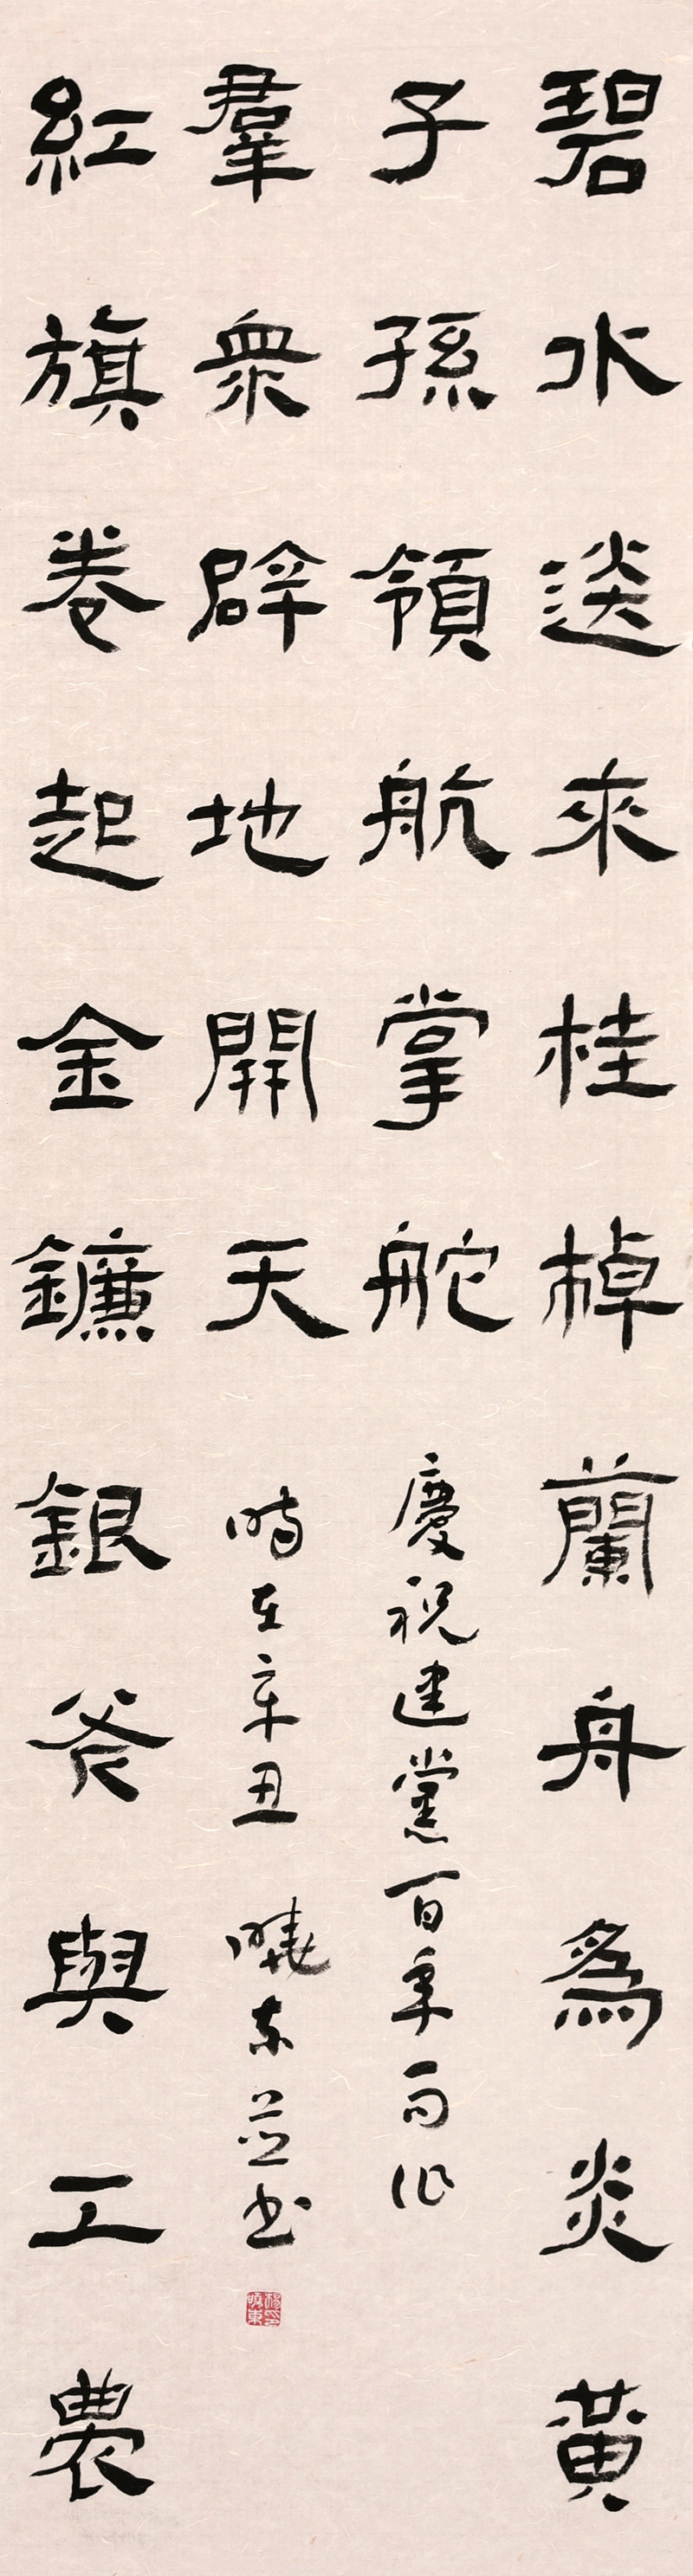 碧水送來桂棹蘭舟爲炎黃
子孫領航掌舵
紅旗卷起金鐮銀斧與工農
羣衆辟地開天
慶祝建黨百年而作
時在辛丑 曉東並书